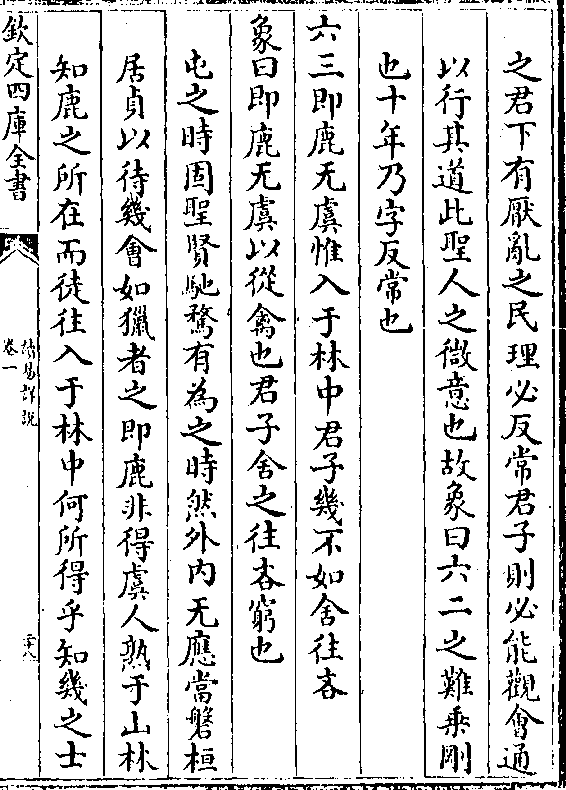 之君下有厭亂之民理必反常君子則必能觀會通
以行其道此聖人之微意也故象曰六二之難乗剛
也十年乃字反常也
六三即鹿无虞惟入于林中君子幾不如舍往吝
象曰即鹿无虞以從禽也君子舍之往吝窮也
屯之時固聖賢馳騖有為之時然外内无應當磐桓
居貞以待幾會如獵者之即鹿非得虞人熟于山林
知鹿之所在而徒往入于林中何所得乎知幾之士
欽定四庫全書
讀易詳說
卷一
二十八